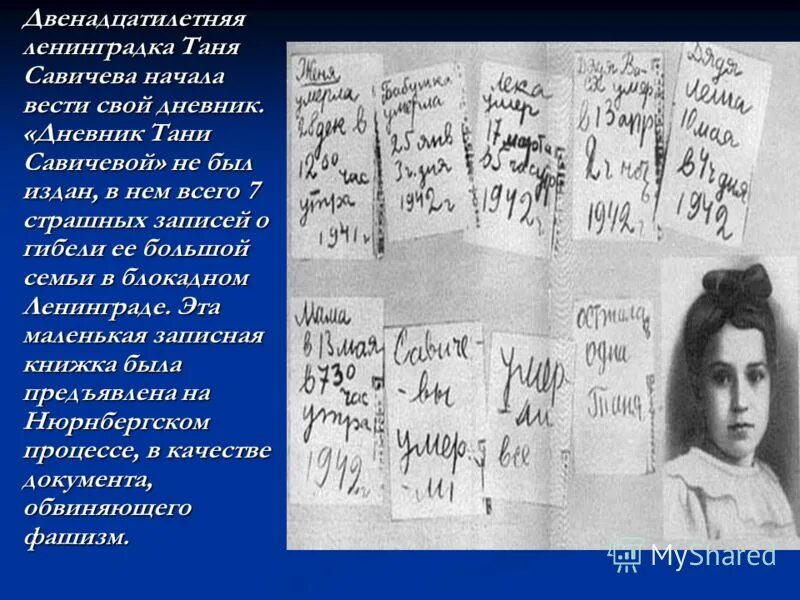 Двенадцатилетняя
ленинградка Таня
Савичева начала
вести свой дневник.
«Дневник Тани
Савичевой» не был
издан, в нем всего 7
страшных записей о
гибели ее большой
семьи в блокадном
Ленинграде. Эта
маленькая записная
книжка была
предъявлена на
Нюрнбергском
процессе, в качестве
документа,
обвиняющего
фашизм.
Женя
умерла
28 дек в
12 00 час
утра
1941 г
Бабушка
умерла
25 янв
3 ч. дня
1942 г
Лека
умер
17 марта
в 5 час утр
1942 г
Дядя Ва-
ся умер
в 13 апр
2 ч ноч
1942 г
Дядя
Леша
10 мая
в 4 ч дня
1942
Мама
в 13 мая
в 7 30
час
утра
1942 г
Савиче-
-вы
умер-
-ли
умер-
-ли
все
осталась
одна
Таня
MyShared